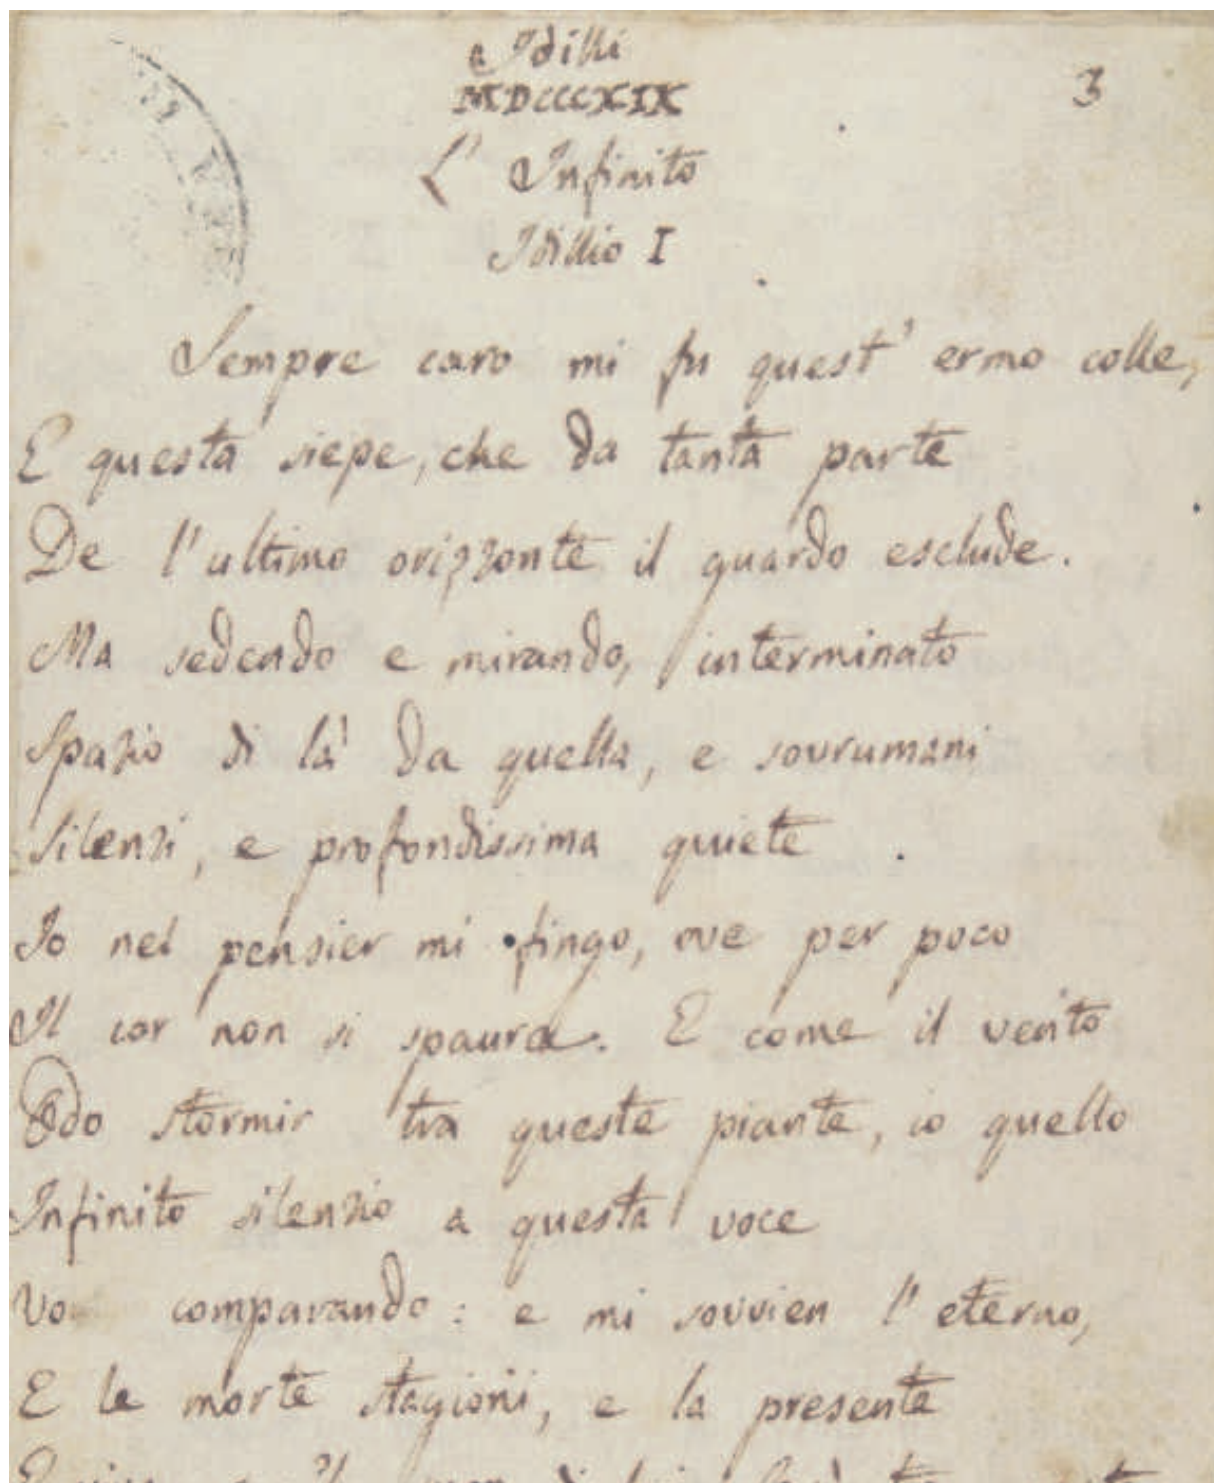 Idilli
MDCCCXIX
3
L' Infinito
Idillio I
Sempre caro mi fu quest' ermo colle,
E questa siepe, che da tanta parte
De l'ultimo orizzonte il guardo esclude.
Ma sedendo e mirando, interminato
Spazio di là da quella, e sovrumani
Silenzi, e profondissima quiete
Io nel pensier mi fingo, ove per poco
Il cor non si spaura. E come il vento
Odo stormir tra queste piante, io quello
Infinito silenzio a questa voce
Vo comparando: e mi sovvien l' eterno,
E le morte stagioni, e la presente